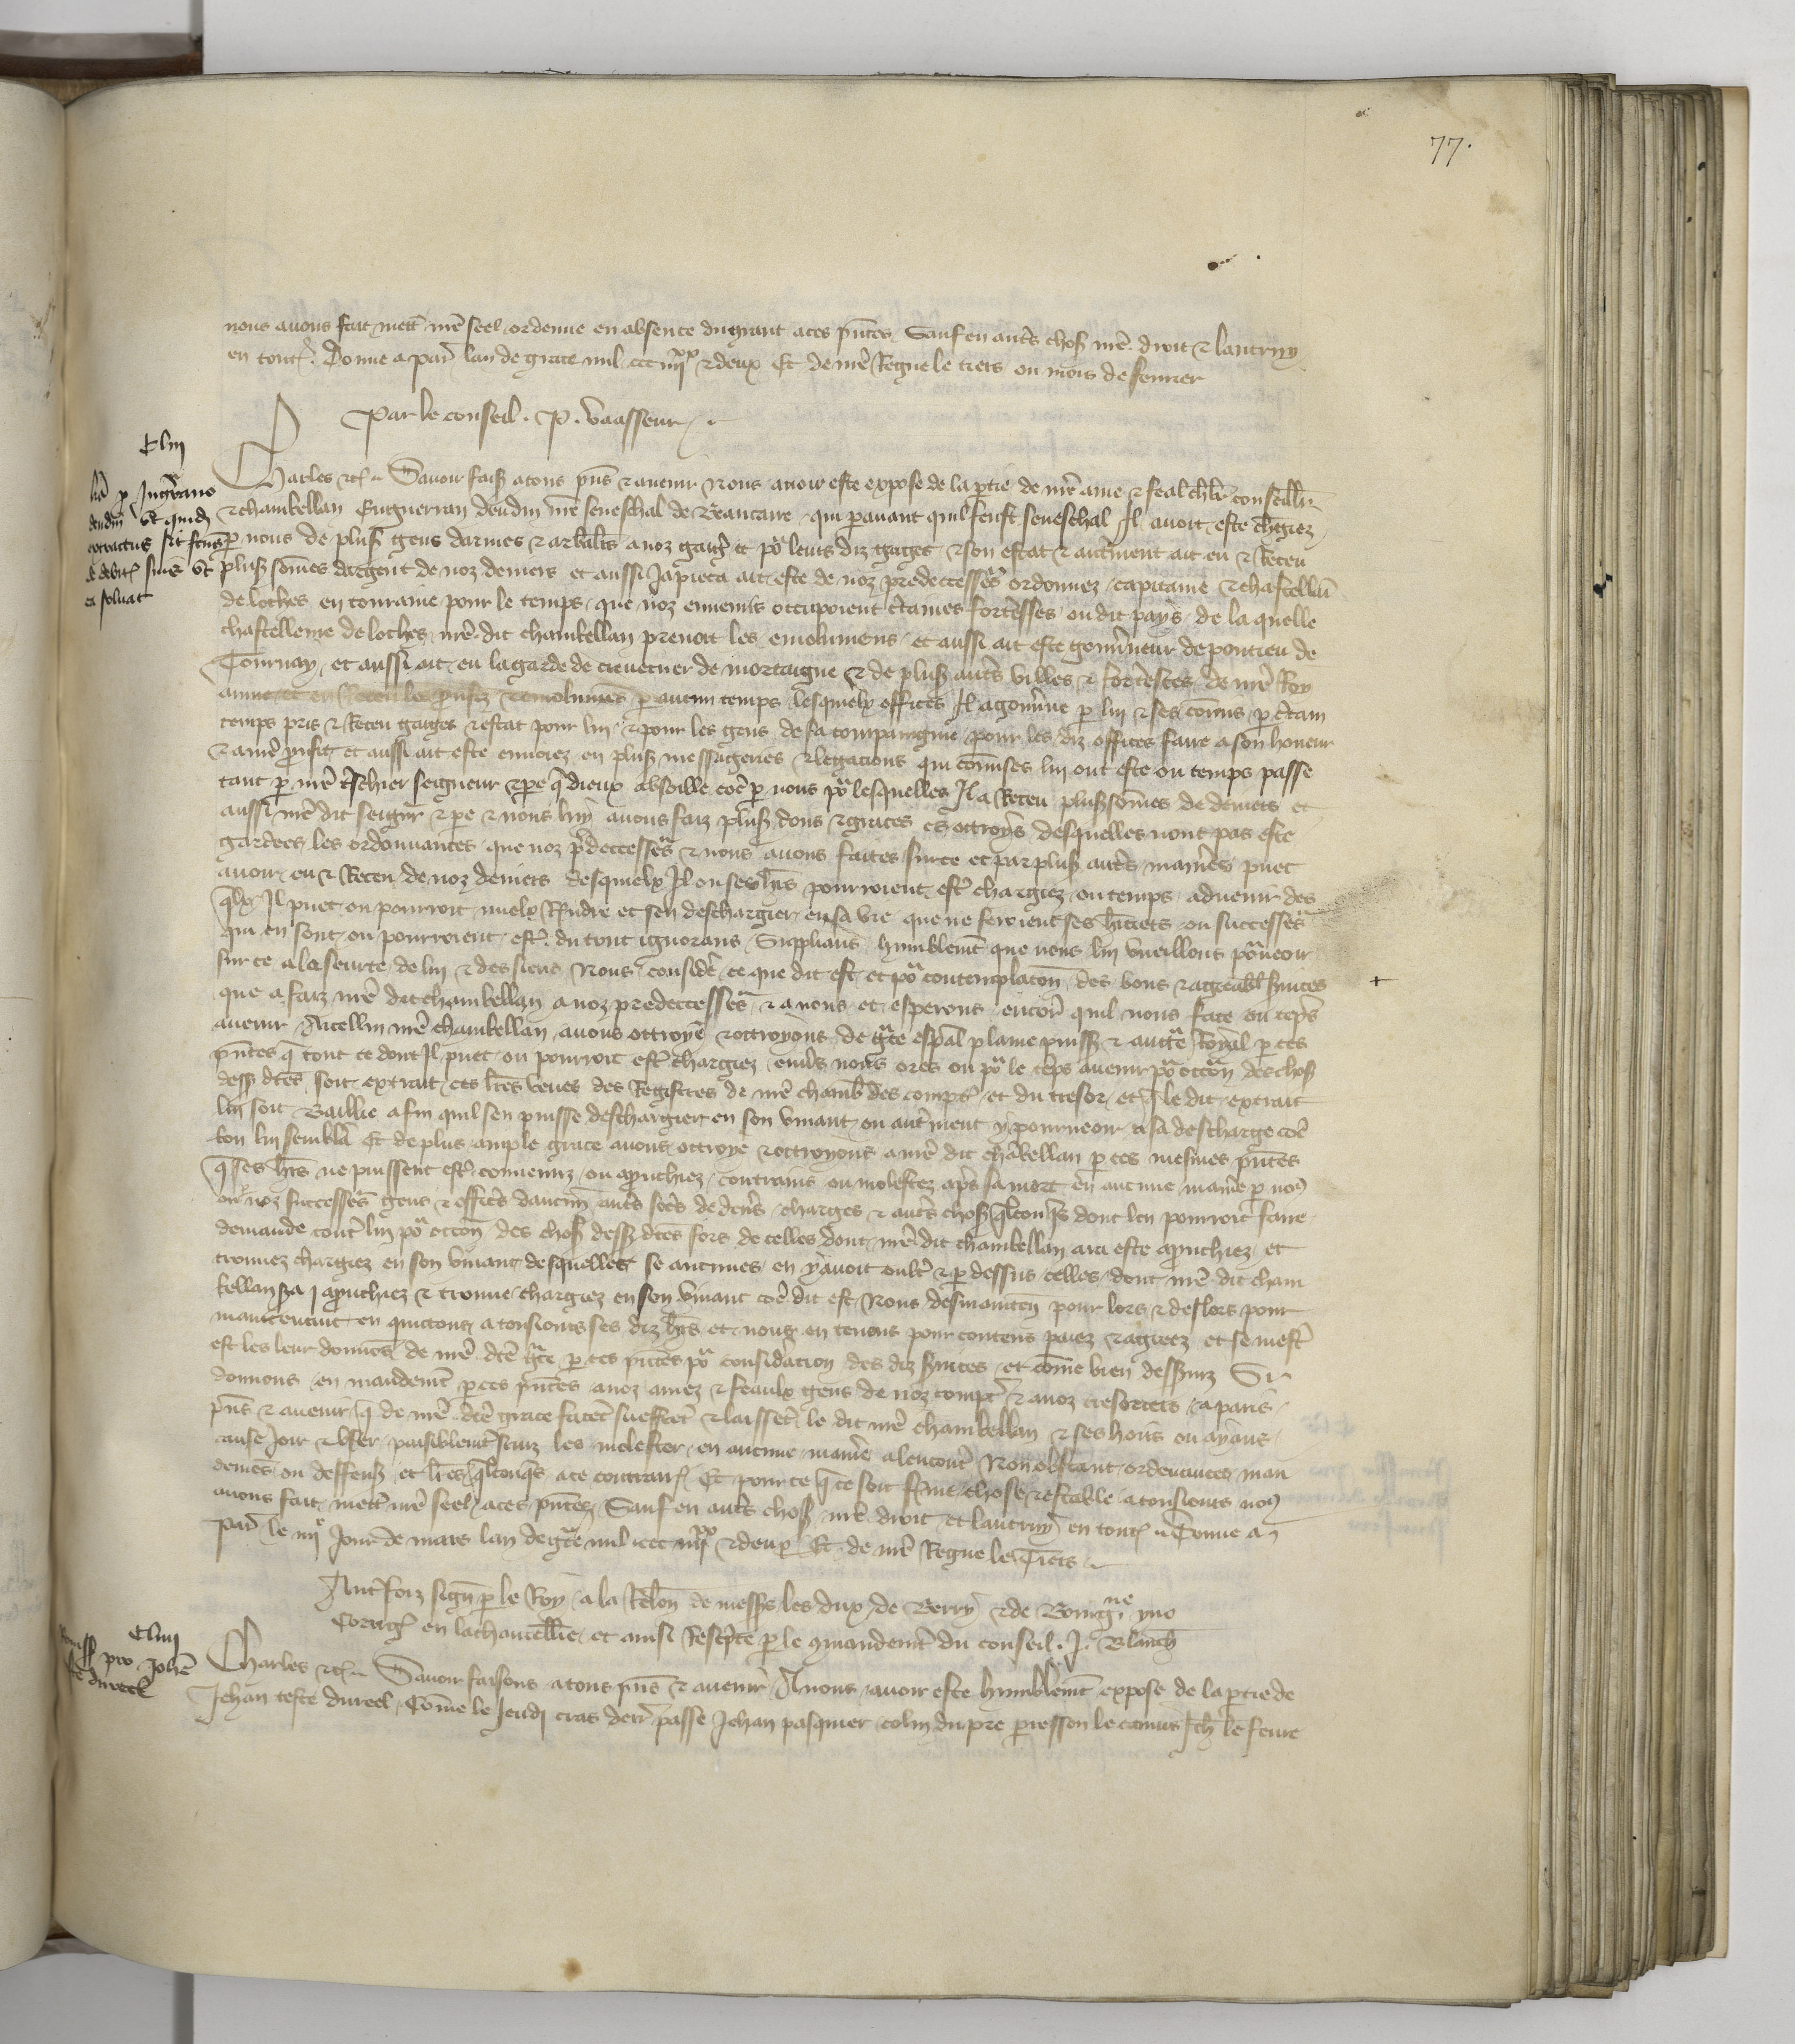 77.
nous avons fait mett nre seel ordene en absence du grant a ces pntes Sauf en autres choses nre droit & lautruy
en toutes. Donne a paris lan de grace mil ccc iiii xx & deux Et de nre Regne le tiers ou mois de fevrier
Par le conseil. P. vaasseur.
Clii
Charles &c. Savoir faisons a tous pns & avenir Nous avoir este expose de la partie de nre ame & feal chlr conseillr
& chambellan Enguerran deudin nre seneschal de Beaucaire qui paravant quil feust seneschal Il avoit este chargiez
p nous de plus gens darmes & arbalestriers a noz gaiges et po leurs diz gaiges & son estat & autrement ait eu & Receu
plus sommes dargent de noz deniers et aussi Japieca ait este de noz predecesseurs ordonnez capitaine & chastellain
de loches en touraine pour le temps que noz ennemis occupoient certaines forteresses ou dit pays de la quelle
chastellenie de loches nre dit chambellan prenoit les emolumens et aussi ait este gouverneur de pontieu de
Tournay et aussi ait eu la garde de crevecuer de mortaigne & de plus autres villes & forteresses de nre Roy
aume et en Receu les proufiz & emolumens p aucun temps lesquelx offices Il a gouverne p lui & ses commis p certain
temps pris & Receu gaiges & estat pour lui & pour les gens de sa compaingnie pour les diz offices faire a son honeur
& a nre proufit et aussi ait este envoiez en plus messageries & legacions qui commises lui ont este ou temps passe
tant p nre treschier seigneur & pere que dieux absoille come p nous po lesquelles Il a Receu plus sommes de deniers et
aussi nre dit seigneur & pere & nous luy avons faiz plus dons & graces es ottroys desquelles nont pas este
gardees les ordonnances que noz predecesseurs & nous avons faites sur ce et par plus autres manieres puet
avoir eu & Receu de noz deniers desquelx Il ou ses hers pourroient estre chargiez ou temps advenir des
qlx Il puet ou pourroit mielx Rendre et sen deschargier en sa vie que ne feroient ses heritiers ou successeurs
qui en sont ou pourroient estre du tout ignorans Suppliant humblement que nous lui vueillons pourveoir
sur ce a la seurte de lui & des siens Nous considere ce que dit est et po contemplacon des bons & agreables services
que a faiz nre dit chambellan a noz predecesseurs & a nous et esperons encore quil nous face ou temps
avenir Aicellui nre chambellan avons ottroye & ottroyons de grace espal plaine puiss & auctorite Royal p ces
pntes q tout ce dont Il puet ou pourroit estre chargiez envers nous ores ou po le temps avenir po occon des choses
dess dtes soit extrait ces lres veues des Registres de nre chambre des comptes et du tresor et q le dit extrait
lui soit Baillie afin quil sen puisse deschargier en son vivant ou autrement y pourveoir a sa descharge come
bon lui semblera Et de plus ample grace avons ottroye & ottroyons a nre dit chambellan p ces mesmes pntes
q ses hers ne puissent estre convenuz ou aprouchiez contrains ou molestez apres sa mort en aucune maniere p nous
ou noz successeurs gens & offices daucunes autres sommes de deniers charges & autres choses qlconques dont len pourroit faire
demande contre lui po occon des choses dess dtes fors de celles dont nre dit chambellan aura este aprouchiez et
trouvez chargiez en son vivant desquelles se aucunes en y avoit oultre & p dessus celles dont nre dit cham
bellan sera aprouchiez & trouve chargiez en son vivant come dit est Nous desmaintenant pour lors & deslors pour
maintenant en quictons a tousiours ses diz hers et nous en tenons pour contens paiez & agreez et se mest
est les leur donnons de nre dte grace p ces pntes po consideracion des diz services et come bien desserviz Si
donnons en mandement p ces pntes a noz amez & feaulx gens de noz comptes & a noz tresoriers a paris
pns & avenir q de nre dte grace facent sueffrent & laissent le dit nre chambellan & ses hoirs ou ayans
cause Joir & user paisiblement sanz les molester en aucune maniere alencontre Non obstant ordenances man
demens ou deffenses et lres qlconques a ce contraires Et pour ce q ce soit ferme chose & estable a tousiours nous
avons fait mettre nre seel a ces pntes Sauf en autres choses nre droit et lautruy en toutes Donne a
paris le iiiie Jour de mars lan de grace mil ccc iiii xx & deux Et de nre Regne le Tiers
Autrefoiz signe p le Roy a la Relon de messrs les dux de Berry & de Bourgne yvo
Corrig en la chancellerie et ainsi Rescripte p le comandement du conseil. J. Blanch
Cliii
Remiss pro Johe
teste dureel
Charles &c. Savoir faisons a tous pns & avenir A nous avoir este humblement expose de la partie de
Jehan teste dureel Come le Jeudi cras derr passe Jehan pasquier colin du pre piersson le camus Jeh le fevre